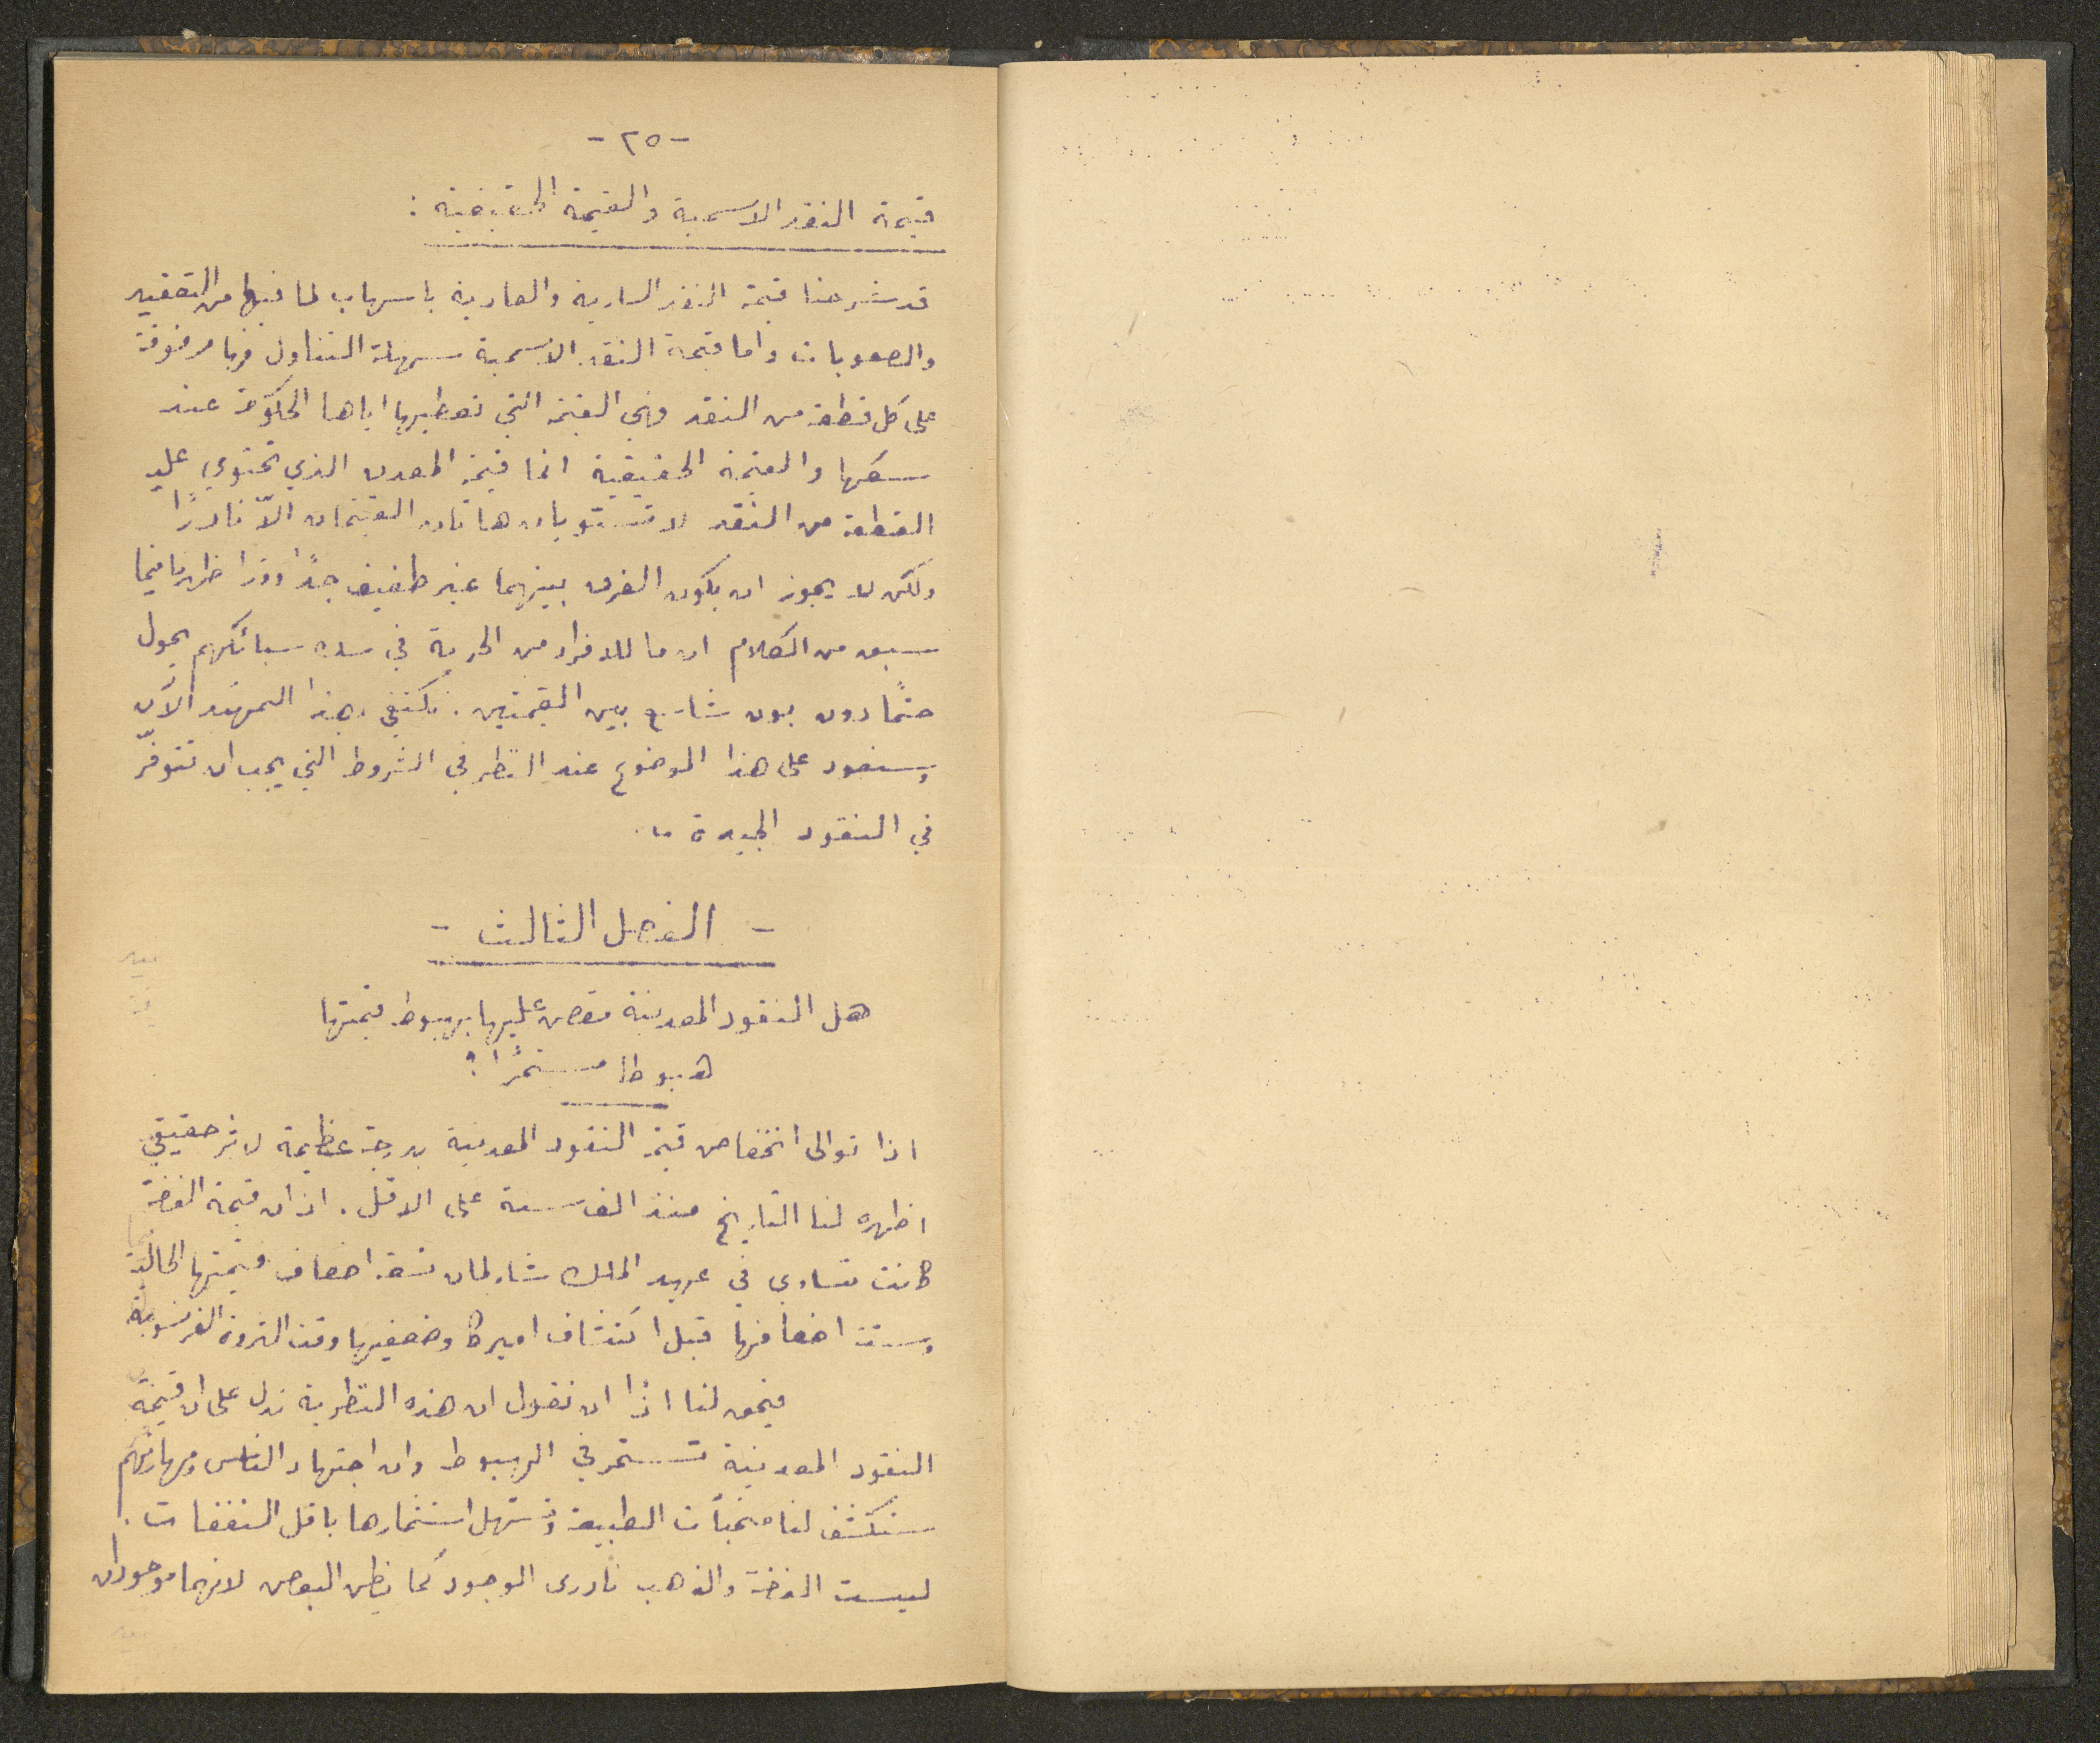 - ٢٥ -
قيمة النقد الاسمية والقيمة الحقيقية :
قد شرحنا قيمة النقد السارية والعادية باسهاب لما فيها من التعقيد
والصعوبات واما قيمة النقد الاسمية سهلة التناول فربا مرفوقة
على كل قطعة من النقد وهي القيمة التي تعطيها اياها الحكومة عند
سكها والقيمة الحقيقية انما قيمة المعدن الذي تحتوي عليه
القطعة من النقد لا تستويان هاتان القيمتان الاّ نادرًا
ولكن لا يجوز ان يكون الفرق بينهما غير طفيف جدًا وذا اظهرنا فيما
سبق من الكلام ان ما للافراد من الحرية في سك سبائكهم يحول
حتمًا دون بون شاسع بين القيمتين . نكتفي بهذا التمهيد الآن
وسنعود على هذا الموضوع عند النظر في الشروط التي يجب ان تتوفّر
في النقود الجيدة ..
- الفصل الثالث -
هل النقود المعدنية مقضى عليها بهبوط قيمتها
هبوطا مستمرًا ؟
اذا توالى انخفاض قيمة النقود المعدنية بدرجة عظيمة لاثر حقيقي
اظهره لنا التاريخ منذ الف سنة على الاقل . اذ ان قيمة الفضة
كانت تساوي في عهد الملك شارلمان تسعة اضعاف قيمتها الحالية
وستة اضعافها قبل اكتشاف اميركا وضعفيها وقت الثروة الفرنسوية
فيحق لنا اذًا ان نقول ان هذه النظرية تدل على ان قيمة
النقود المعدنية تستمر في الهبوط وان اجتهاد الناس ومهارتهم
ستكشف لنا مخبآت الطبيعة وتسهل استثمارها باقل النفقات .
ليست الفضة والذهب نادرى الوجود كما يظن البعض لانهما موجودان